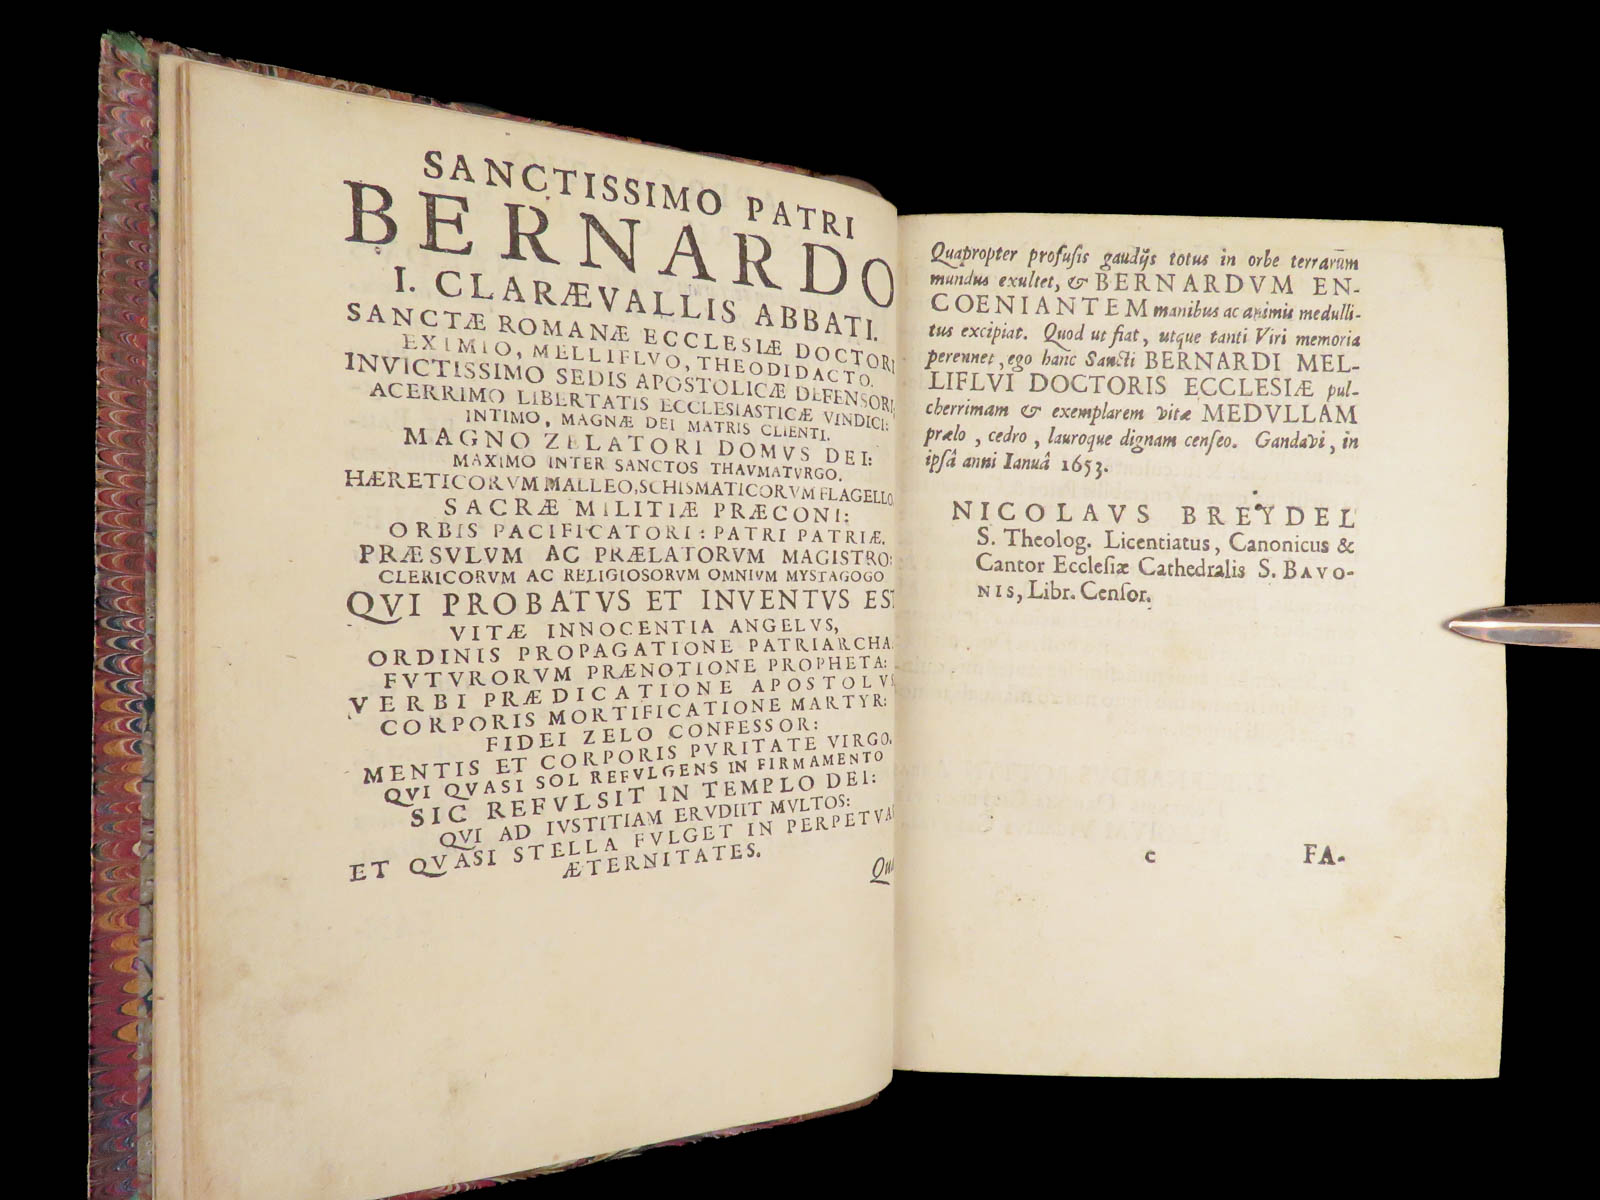 SANCTISSIMO PATRI
BERNARDO
I. CLARÆVALLIS ABBATI.
SANCTÆ ROMANÆ ECCLESIÆ DOCTORI
EXIMIO, MELLIFLVO, THEODIDACTO.
INVICTISSIMO SEDIS APOSTOLICÆ DEFENSORI,
ACERRIMO LIBERTATIS ECCLESIASTICÆ VINDICI:
INTIMO, MAGNÆ DEI MATRIS CLIENTI.
MAGNO ZELATORI DOMVS DEI:
MAXIMO INTER SANCTOS THAVMATVRGO.
HÆRETICORVM MALLEO, SCHISMATICORVM FLAGELLO,
SACRÆ MILITIÆ PRÆCONI:
ORBIS PACIFICATORI: PATRI PATRIÆ.
PRÆSVLVM AC PRÆLATORVM MAGISTRO:
CLERICORVM AC RELIGIOSORVM OMNIVM MYSTAGOGO
QVI PROBATVS ET INVENTVS EST
VITÆ INNOCENTIA ANGELVS,
ORDINIS PROPAGATIONE PATRIARCHA.
FVTVRORVM PRÆNOTIONE PROPHETA:
VERBI PRÆDICATIONE APOSTOLVS
CORPORIS MORTIFICATIONE MARTYR:
FIDEI ZELO CONFESSOR:
MENTIS ET CORPORIS PVRITATE VIRGO.
QVI QVASI SOL REFVLGENS IN FIRMAMENTO
SIC REFVLSIT IN TEMPLO DEI:
QVI AD IVSTITIAM ERVDIIT MVLTOS:
ET QVASI STELLA FVLGET IN PERPETVAS
ÆTERNITATES.
Qua
Quapropter profusis gaudijs totus in orbe terrarūm
mundus exultet, & BERNARDVM EN-
COENIANTEM manibus ac animis medulli-
tus excipiat. Quod ut fiat, utque tanti Viri memoria
perennet, ego hanc Sancti BERNARDI MEL-
LIFLVI DOCTORIS ECCLESIÆ pul-
cherrimam & exemplarem vitæ MEDVLLAM
prælo, cedro, lauroque dignam censeo. Gandavi, in
ipsâ anni Ianuâ 1653.
NICOLAVS BREYDEL
S. Theolog. Licentiatus, Canonicus &
Cantor Ecclesiæ Cathedralis S. BAVO-
NIS, Libr. Censor.
c FA-